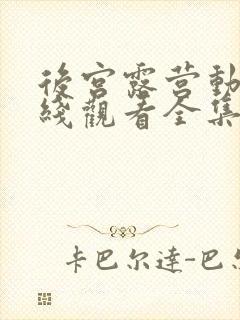 後宮露营動
綫觀看全集
卡巴尔達-巴尔